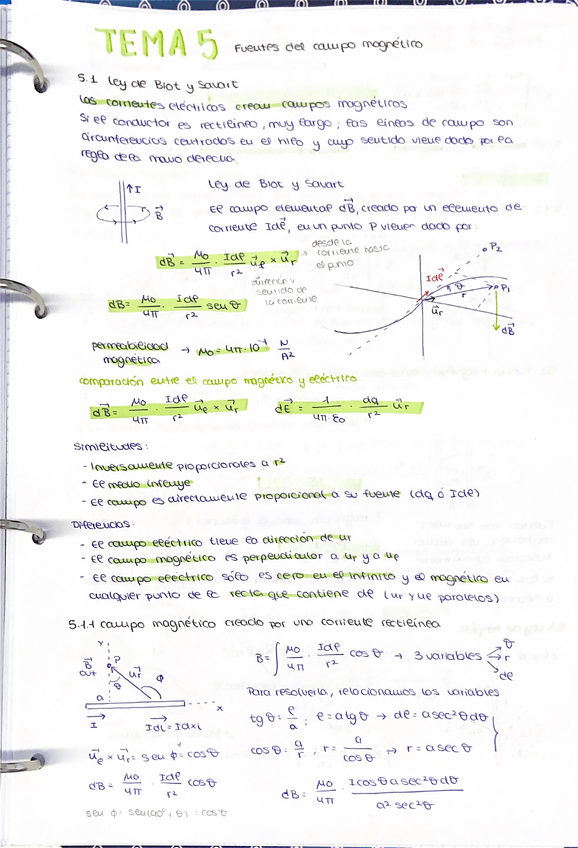 TEMA 5 Fuentes del campo magnético
5.1 Ley de Biot y Savart
Las corrientes eléctricas crean campos magnéticos
Si el conductor es rectilíneo, muy largo; las líneas de campo son
circunferencias centradas en el hilo y cuyo sentido viene dado por la
regla de la mano derecha.
↑I
B⃗
Ley de Biot y Savart
El campo elemental dB⃗, creado por un elemento de
corriente Idl⃗, en un punto P viene dado por:
dB⃗ = μo/4π · Idl/r² u⃗l × u⃗r
desde la
corriente hasta
el punto
dirección y
sentido de
la corriente
dB = μo/4π · Idl/r² sen θ
P2
Idl⃗
θ
r
P1
u⃗r
dB⃗
permeabilidad
magnética → μo = 4π·10⁻⁷ N/A²
comparación entre el campo magnético y eléctrico
dB⃗ = μo/4π · Idl/r² u⃗l × u⃗r dE⃗ = 1/4π·εo · dq/r² u⃗r
Similitudes:
- Inversamente proporcionales a r²
- El medio influye
- El campo es directamente proporcional a su fuente (dq ó Idl)
Diferencias:
- El campo eléctrico tiene la dirección de ur
- El campo magnético es perpendicular a ur y a ul
- El campo eléctrico sólo es cero en el infinito y el magnético en
cualquier punto de la recta que contiene dl (ur y ul paralelos)
5.1.1 campo magnético creado por una corriente rectilínea
Y
B⃗
out
P
u⃗r
θ
Φ
a
x
I
Idl = Idxi
B = ∫ μo/4π · Idl/r² cos θ → 3 variables
θ
r
dl
Para resolverla, relacionamos las variables
tg θ = l/a ; l = a tg θ → dl = a sec² θ dθ
u⃗l × u⃗r = sen Φ = cos θ
cos θ = a/r ; r = a/cos θ → r = a sec θ
dB = μo/4π · Idl/r² cos θ
dB = μo/4π · I cos θ a sec² θ dθ/a² sec² θ
sen Φ = sen(90° + θ) = cos θ